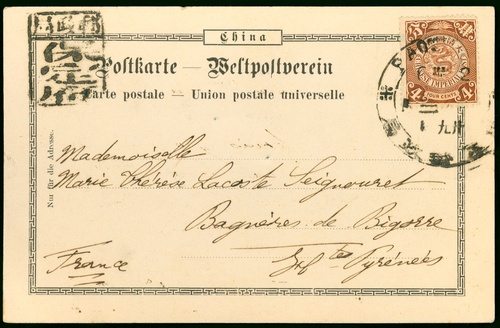 China
Postkarte — Weltpostverein
Carte postale — Union postale universelle
Nur für die Adresse.
Mademoiselle
Marie Thérèse Lacoste Seignouret
Bagnères de Bigorre
Htes Pyrénées
France